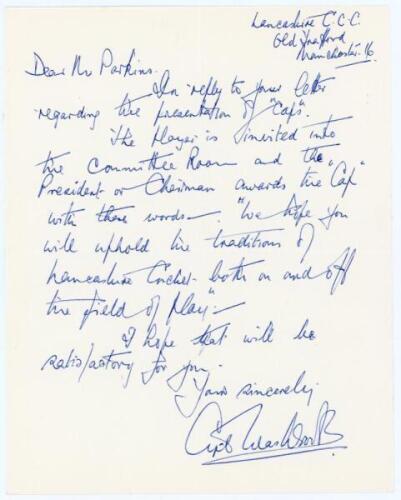 Lancashire C.C.C.
Old Trafford
Manchester. 16.
Dear Mr Parkins.
In reply to your letter
regarding the presentation of "Caps".
The Player is invited into
the Committee Room and the
President or Chairman awards the "Cap"
with these words - "We hope you
will uphold the traditions of
Lancashire Cricket - both on and off
the field of play" -
I hope that will be
satisfactory for you.
Yours sincerely